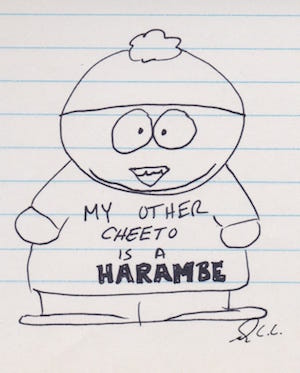 MY OTHER
CHEETO
IS A
HARAMBE
C.C.